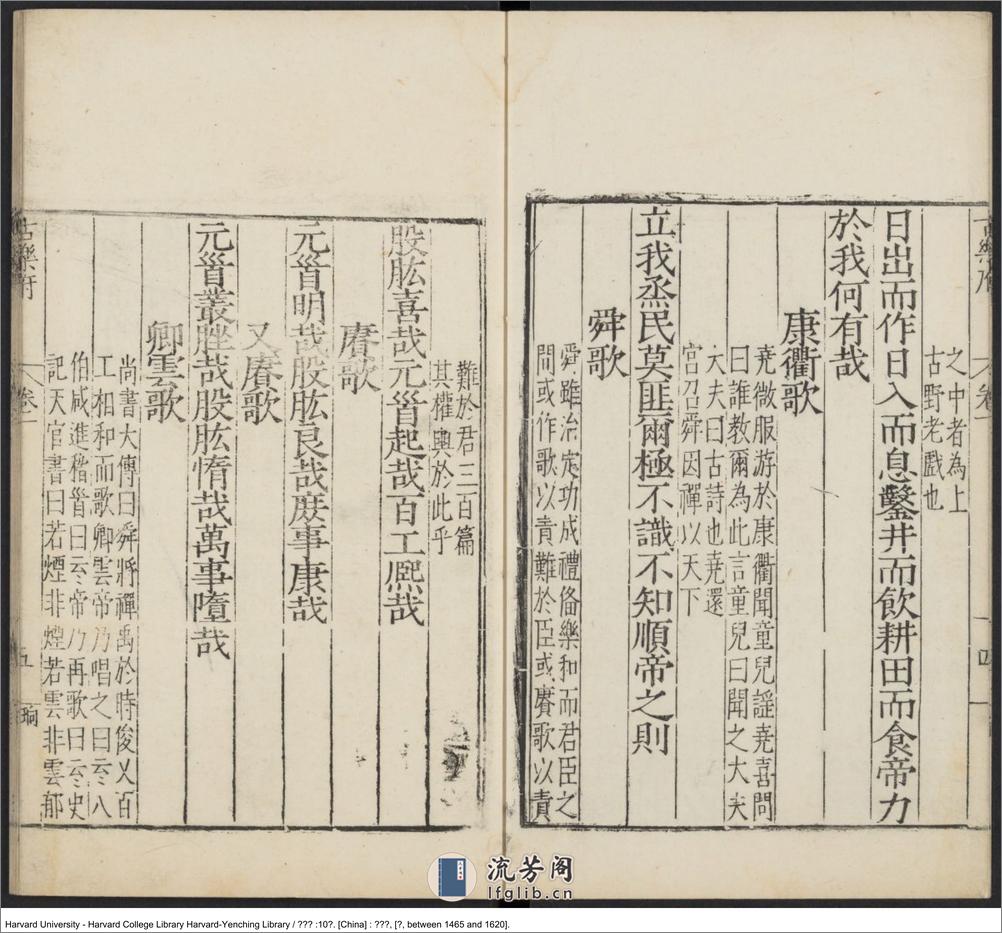 之中者為上
古野老戲也
日出而作日入而息鑿井而飲耕田而食帝力
於我何有哉
康衢歌
堯微服游於康衢聞童兒謡堯喜問
曰誰教爾為此言童兒曰聞之大夫
大夫曰古詩也堯還
宫召舜因禪以天下
立我烝民莫匪爾極不識不知順帝之則
舜歌
舜雖治定功成禮俻樂和而君臣之
間或作歌以責難於臣或賡歌以責
難於君三百篇
其權輿於此乎
股肱喜哉元首起哉百工熈哉
賡歌
元首明哉股肱良哉庻事康哉
又賡歌
元首叢脞哉股肱惰哉萬事墮哉
卿雲歌
尚書大傳曰舜將禪禹於時俊乂百
工相和而歌卿雲帝乃唱之曰云云八
伯咸進稽首曰云云帝乃再歌曰云云史
記天官書曰若煙非煙若雲非雲郁
古樂府
卷一
五
四
流芳阁
lfglib.cn
Harvard University - Harvard College Library Harvard-Yenching Library / ??? :10?. [China] : ???, [?, between 1465 and 1620].